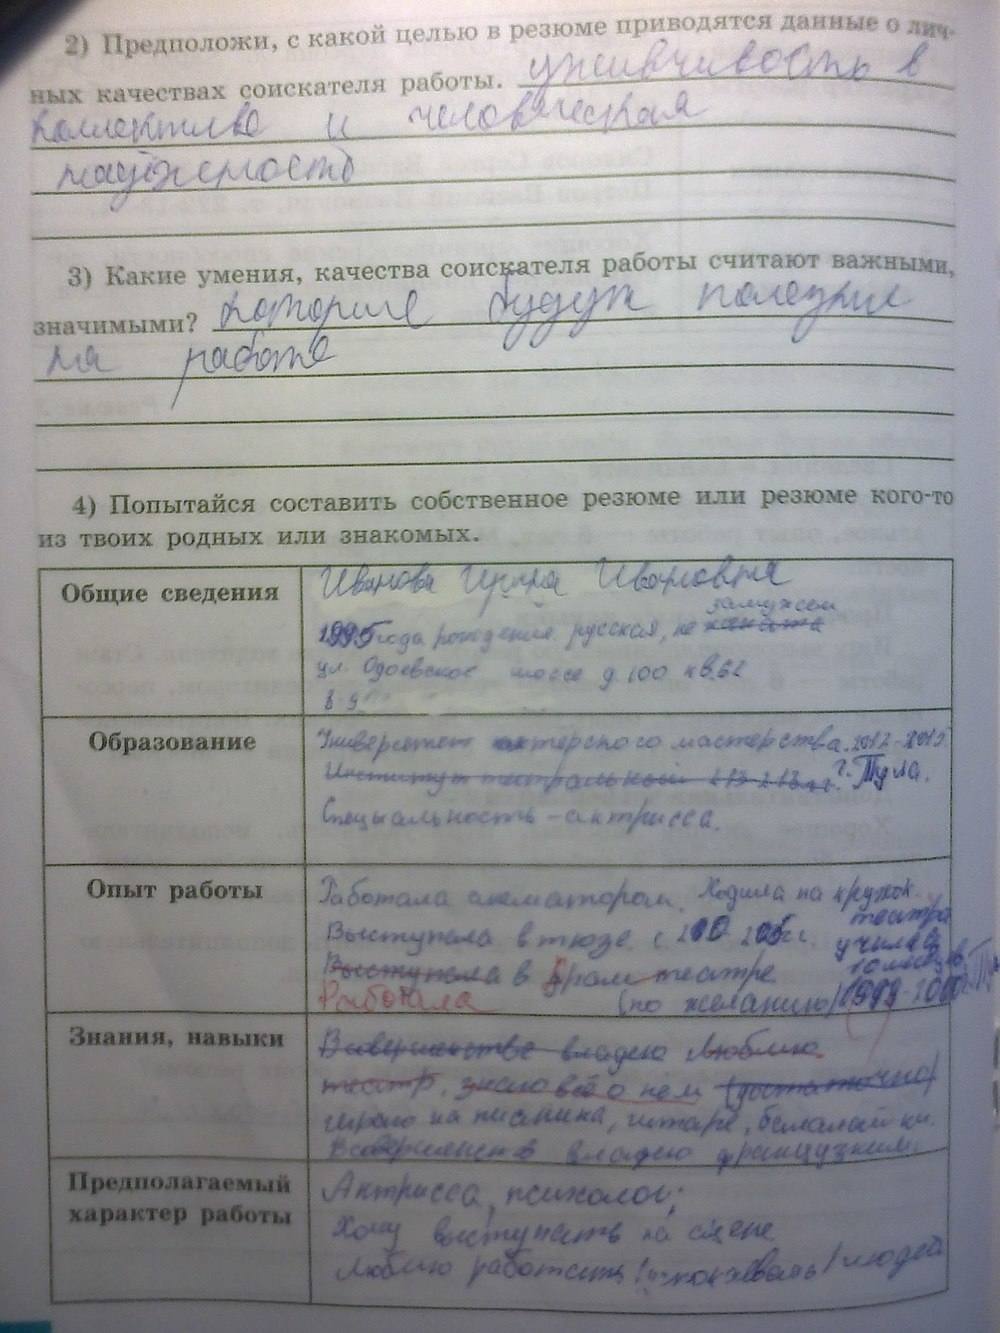 2) Предположи, с какой целью в резюме приводятся данные о лич-
ных качествах соискателя работы. уживчивость в
коллективе и человеческая
надёжность
3) Какие умения, качества соискателя работы считают важными,
значимыми? которые будут полезные
на работе
4) Попытайся составить собственное резюме или резюме кого-то
из твоих родных или знакомых.
Общие сведения
Иванова Ирина Ивановна
замужем
1995 года рождения. русская, не
ул. Одоевское шоссе д. 100 кв. 62
8-9
Образование
Университет актерского мастерства. 2012-2015
Институт театральный г. Тула.
Специальность - актрисса.
Опыт работы
Работала аниматором. Ходила на кружок
театра
Выступала в тюзе с
Выступала в Драм театре
Работала (по желанию)
Знания, навыки
В совершенстве владею Люблю
театр, знаю всё о нем (достаточно)
играю на пианина, гитаре, балалайки.
В совершенств владею французким.
Предполагаемый
характер работы
Актрисса, психолог;
Хочу выступать на сцене
Люблю работать людей